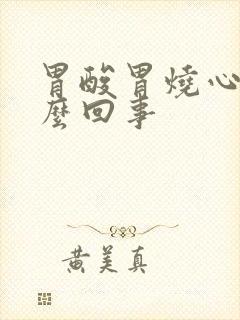 胃酸胃燒心
麼回事
黃美真